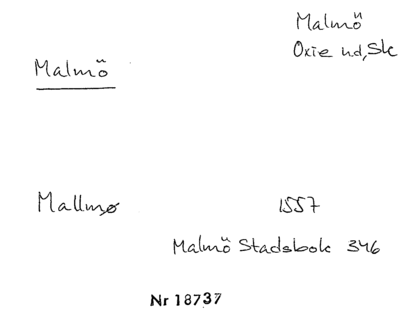 Malmö
Oxie hd, Sk
Malmö
Mallmø 1557
Malmö Stadsbok 346
Nr 18737